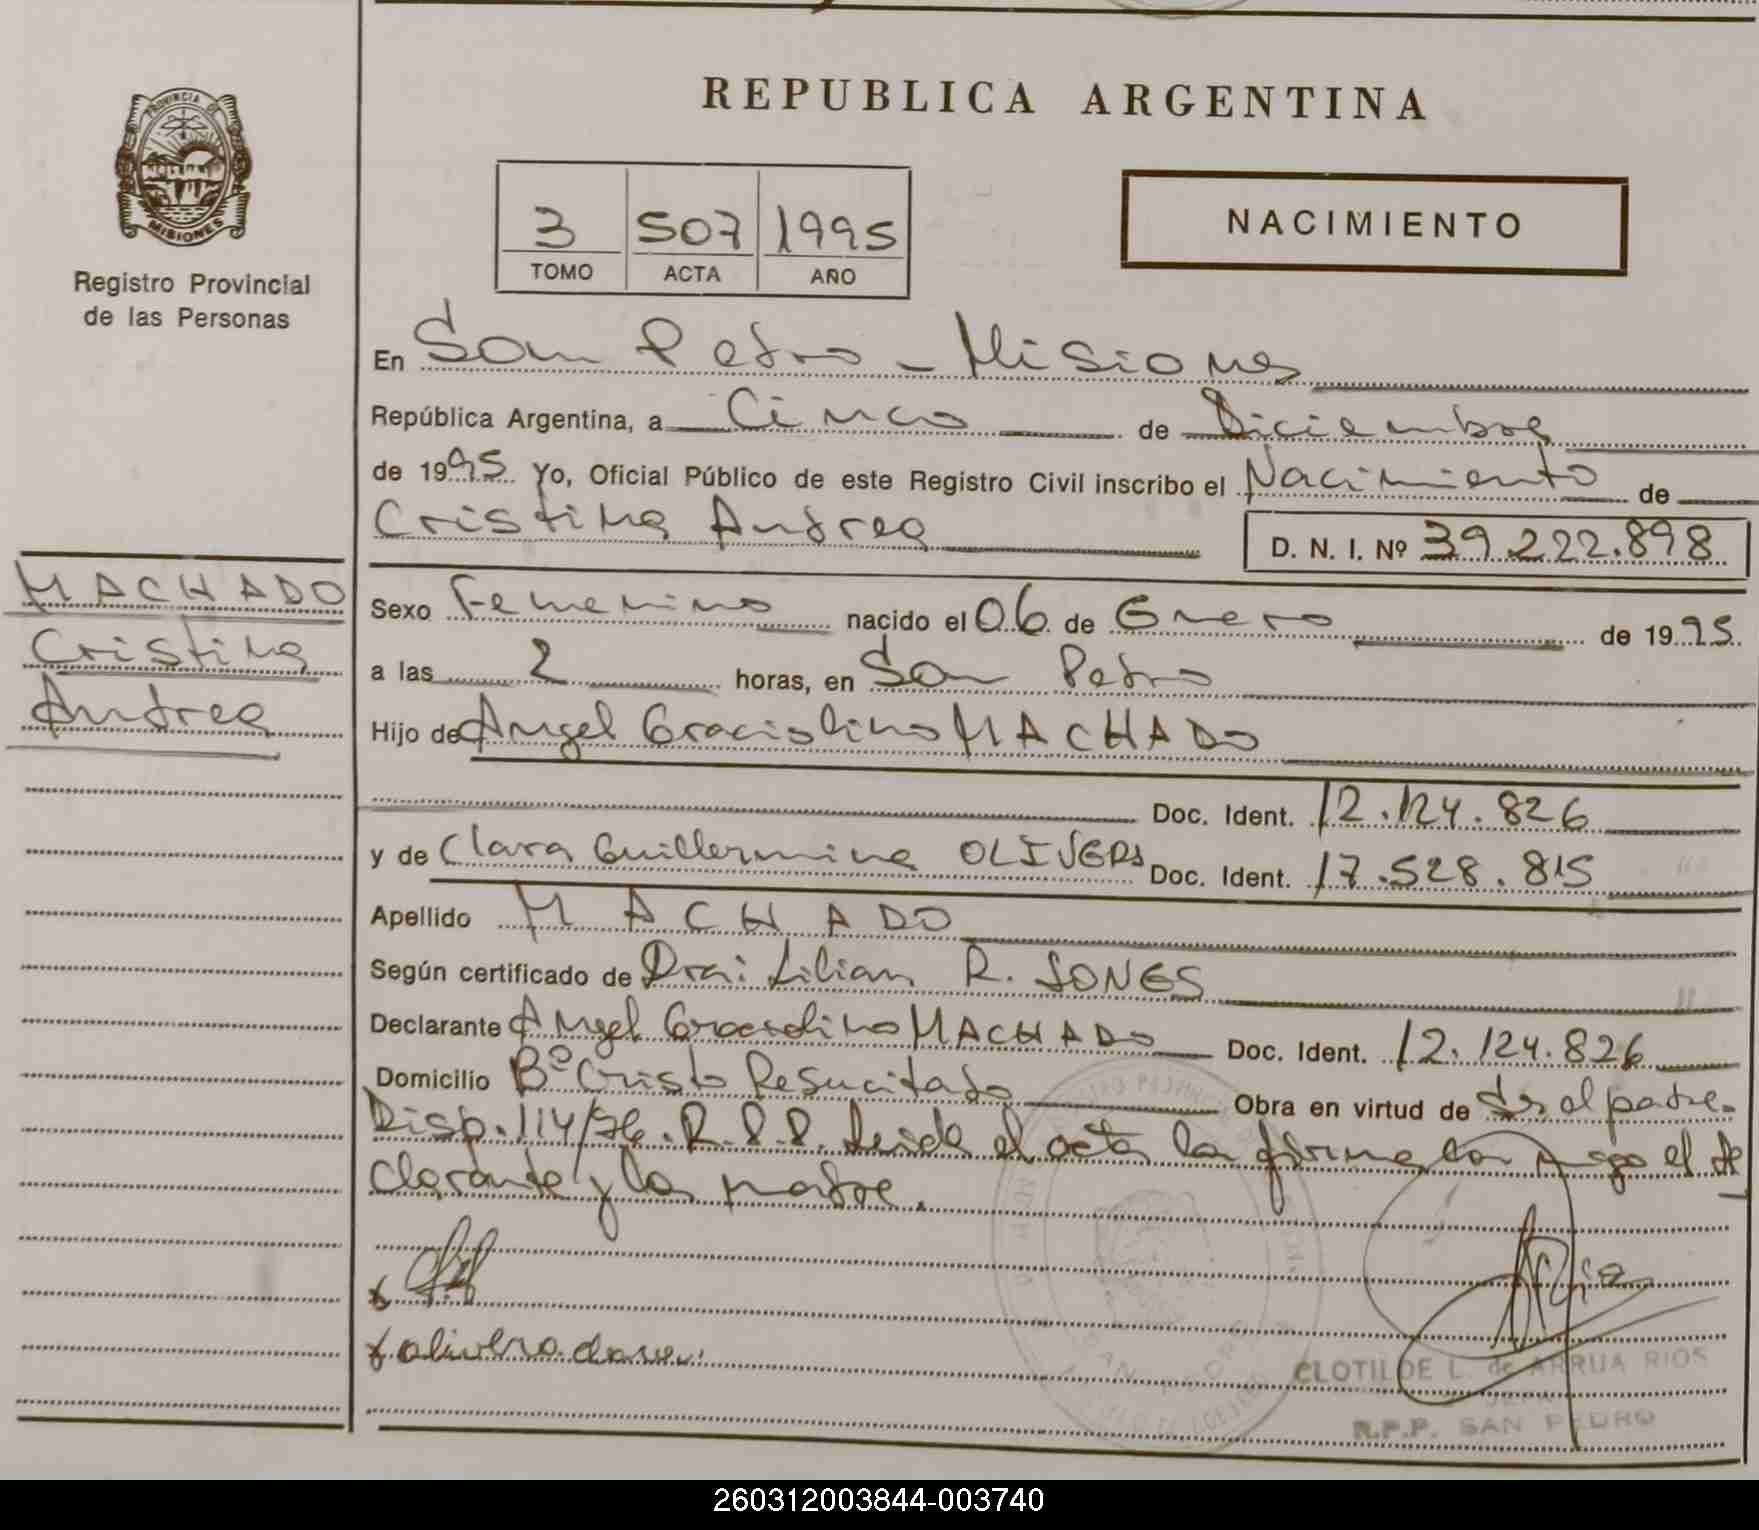 REPUBLICA ARGENTINA
PROVINCIA DE
MISIONES
Registro Provincial
de las Personas
3 507 1995
TOMO ACTA AÑO
NACIMIENTO
En San Pedro - Misiones
República Argentina, a Cinco de Diciembre
de 1995 Yo, Oficial Público de este Registro Civil inscribo el Nacimiento de
Cristina Andrea D. N. I. Nº 39.222.898
MACHADO
Cristina
Andrea
Sexo Femenino nacido el 06 de Enero de 1995
a las 2 horas, en San Pedro
Hijo de Angel Graciolino MACHADO
Doc. Ident. 12.124.826
y de Clara Guillermina OLIVERA Doc. Ident. 17.528.815
Apellido MACHADO
Según certificado de Dra: Lilian R. JONES
Declarante Angel Graciolino MACHADO Doc. Ident. 12.124.826
Domicilio Bº Cristo Resucitado Obra en virtud de Ser el padre.
Disp. 114/76. R.P.P. Leida el acta la firma con migo el de
clarante y la madre.
x
x olivera clara
CLOTILDE L. de ARRUA RIOS
JEFA
R.P.P. SAN PEDRO
260312003844-003740